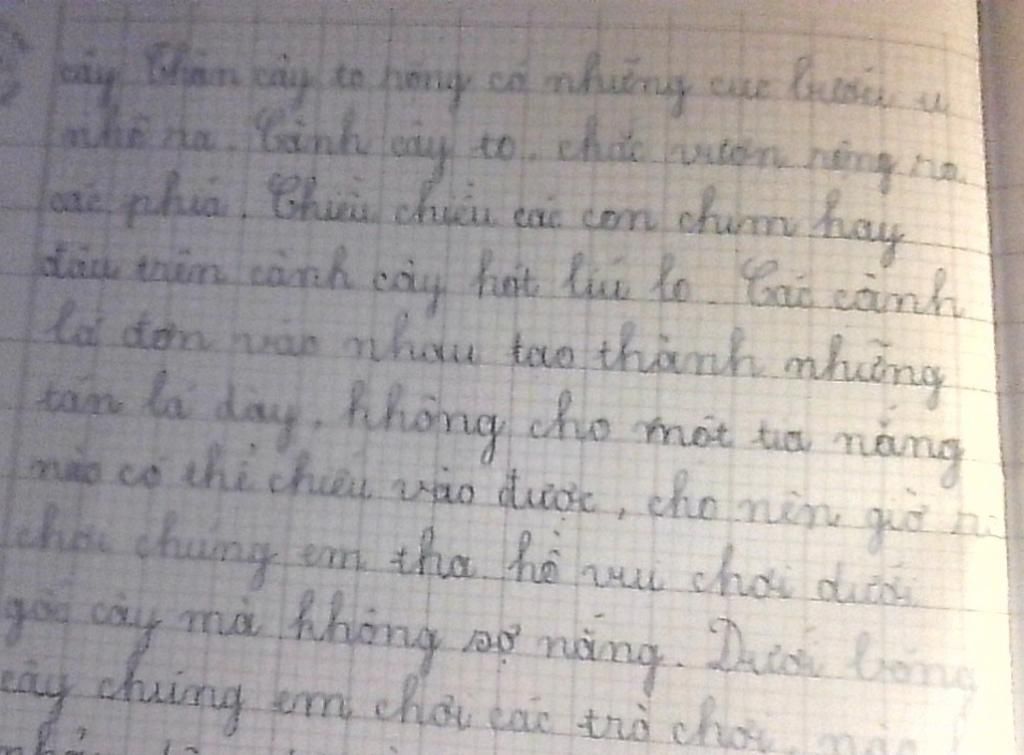 cây Thân cây to hồng có những cục bướu u
nhô ra. Cành cây to, chắc vươn rộng ra
các phía. Chiều chiều các con chim hay
đậu trên cành cây hót líu lo. Các cành
lá đan vào nhau tạo thành những
tán lá dày, không cho một tia nắng
nào có thể chiếu vào được, cho nên giờ
chơi chúng em tha hồ vui chơi dưới
gốc cây mà không sợ nắng. Dưới bóng
cây chúng em chơi các trò chơi